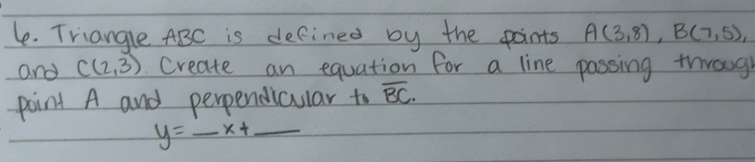 6. Triangle ABC is defined by the points A(3,8), B(7,5),
and C(2,3). Create an equation for a line passing through
point A and perpendicular to BC.
y=__x+__